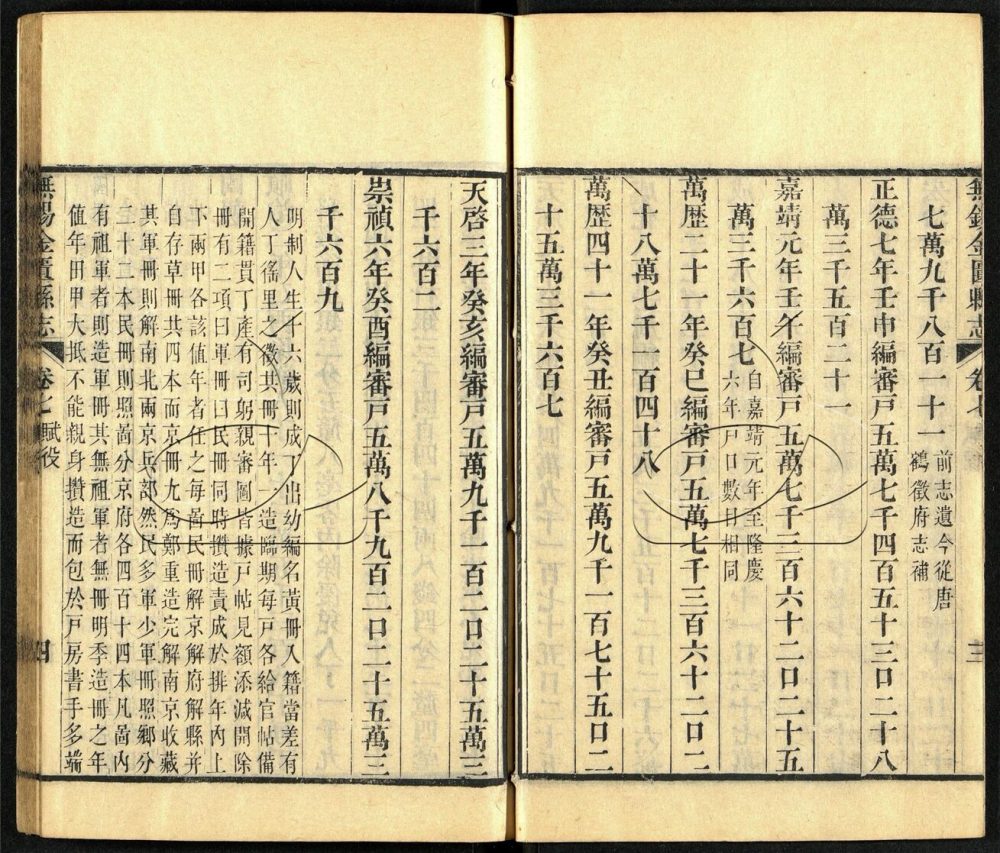 無錫金匱縣志
卷七
三
七萬九千八百一十一前志遺今從唐
鶴徵府志補
正德七年壬申編審戸五萬七千四百五十三口二十八
萬三千五百二十一
嘉靖元年壬午編審戸五萬七千三百六十二口二十五
萬三千六百七自嘉靖元年至隆慶
六年戸口數目相同
萬歴二十一年癸巳編審戸五萬七千三百六十二口二
十八萬七千一百四十八
萬歴四十一年癸丑編審戸五萬九千一百七十五口二
十五萬三千六百七
天啓三年癸亥編審戸五萬九千一百二口二十五萬三
千六百二
崇禎六年癸酉編審戸五萬八千九百二口二十五萬三
千六百九
明制人生十六歲則成丁出幼編名黃冊入籍當差有
人丁徭里之徵其冊十年一造臨期每戸各給官帖備
開籍貫丁產有司躬親審圖皆據戸帖見額添減開除
冊有二項曰軍冊曰民冊同時攢造責成於排年內上
下兩甲各該值年者任之每啚民冊解京解府解縣并
自存草冊共四本而京冊尢爲鄭重造完解南京收藏
其軍冊則解南北兩京兵部然民多軍少軍冊照鄉分
三十二本民冊則照啚分京府各四百十四本凡啚内
有祖軍者則造軍冊其無祖軍者無冊明季造冊之年
值年田甲大抵不能親身攢造而包於戸房書手多端
無錫金匱縣志
卷七
賦役
四